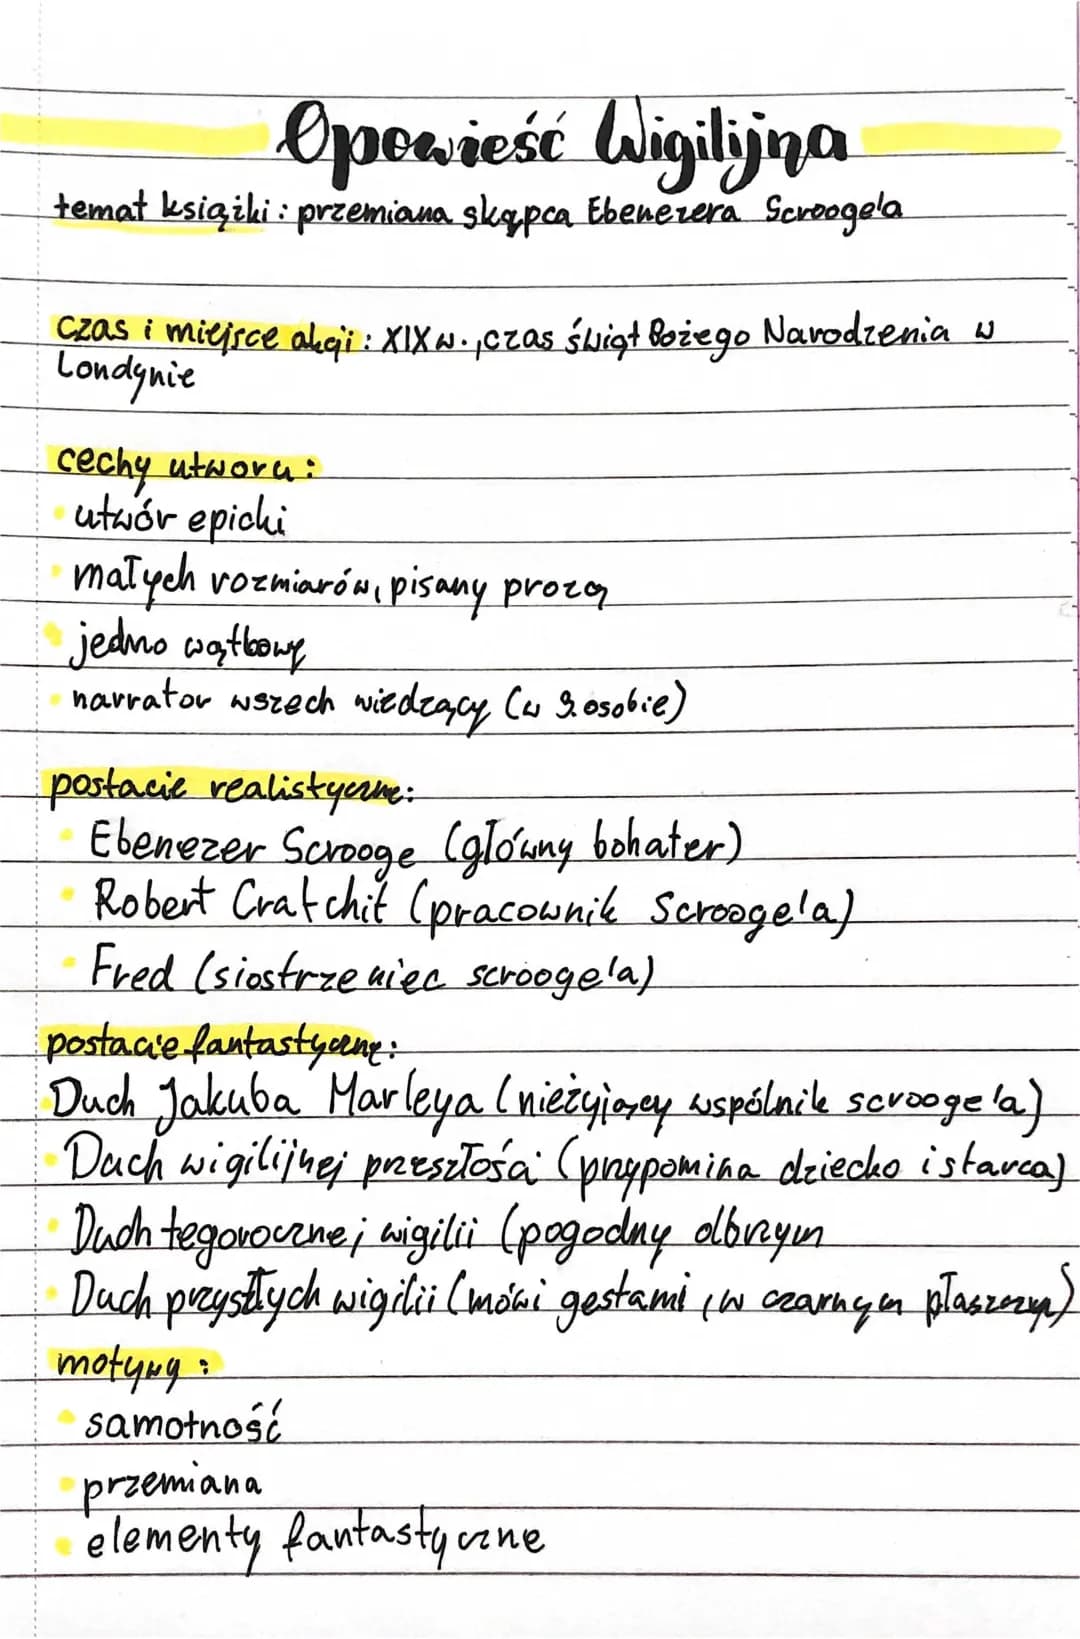 Opowieść Wigilijna
temat książki : przemiana skąpca Ebenezera Scrooge'a
czas i miejsce akcji : XIX w., czas świąt Bożego Narodzenia w
Londynie
cechy utworu :
• utwór epicki
• małych rozmiarów, pisany prozą
• jedno wątkowy
• narrator wszech wiedzący (w 3. osobie)
postacie realistyczne:
• Ebenezer Scrooge (główny bohater)
• Robert Cratchit (pracownik Scrooge'a)
• Fred (siostrzeniec scrooge'a)
postacie fantastyczne:
• Duch Jakuba Marleya (nieżyjący wspólnik scrooge'a)
• Duch wigilijnej przeszłości (przypomina dziecko i starca)
• Duch tegorocznej wigilii (pogodny olbrzym
• Duch przyszłych wigilii (mówi gestami, w czarnym płaszczu)
motywy :
• samotność
• przemiana
• elementy fantastyczne